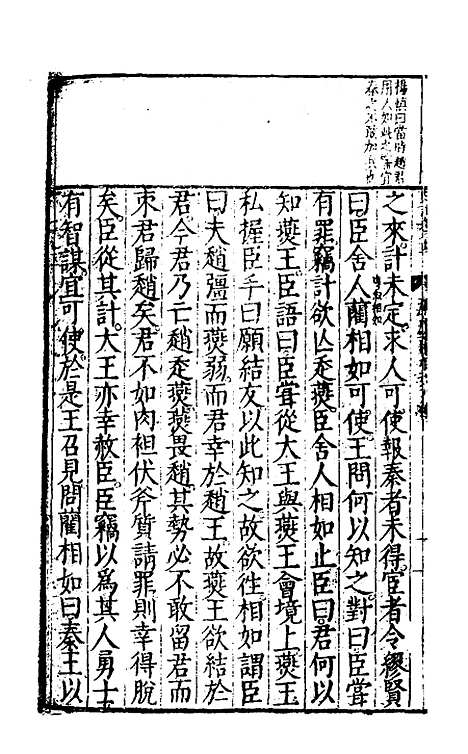 楊慎曰當時趙君
用人如此之審宜
秦之不敢加兵也
之來計未定求人可使報秦者未得宦者令繆賢
曰臣舍人藺相如可使王問何以知之對曰臣嘗
有罪竊計欲亾走燕臣舍人相如止臣曰君何以
知燕王臣語曰臣嘗從大王與燕王會境上燕王
私握臣手曰願結友以此知之故欲徃相如謂臣
曰夫趙彊而燕弱而君幸於趙王故燕王欲結於
君今君乃亡趙走燕燕畏趙其勢必不敢留君而
束君歸趙矣君不如肉袒伏斧質請罪則幸得脫
矣臣從其計大王亦幸赦臣臣竊以爲其人勇士
有智謀宜可使於是王召見問藺相如曰秦王以